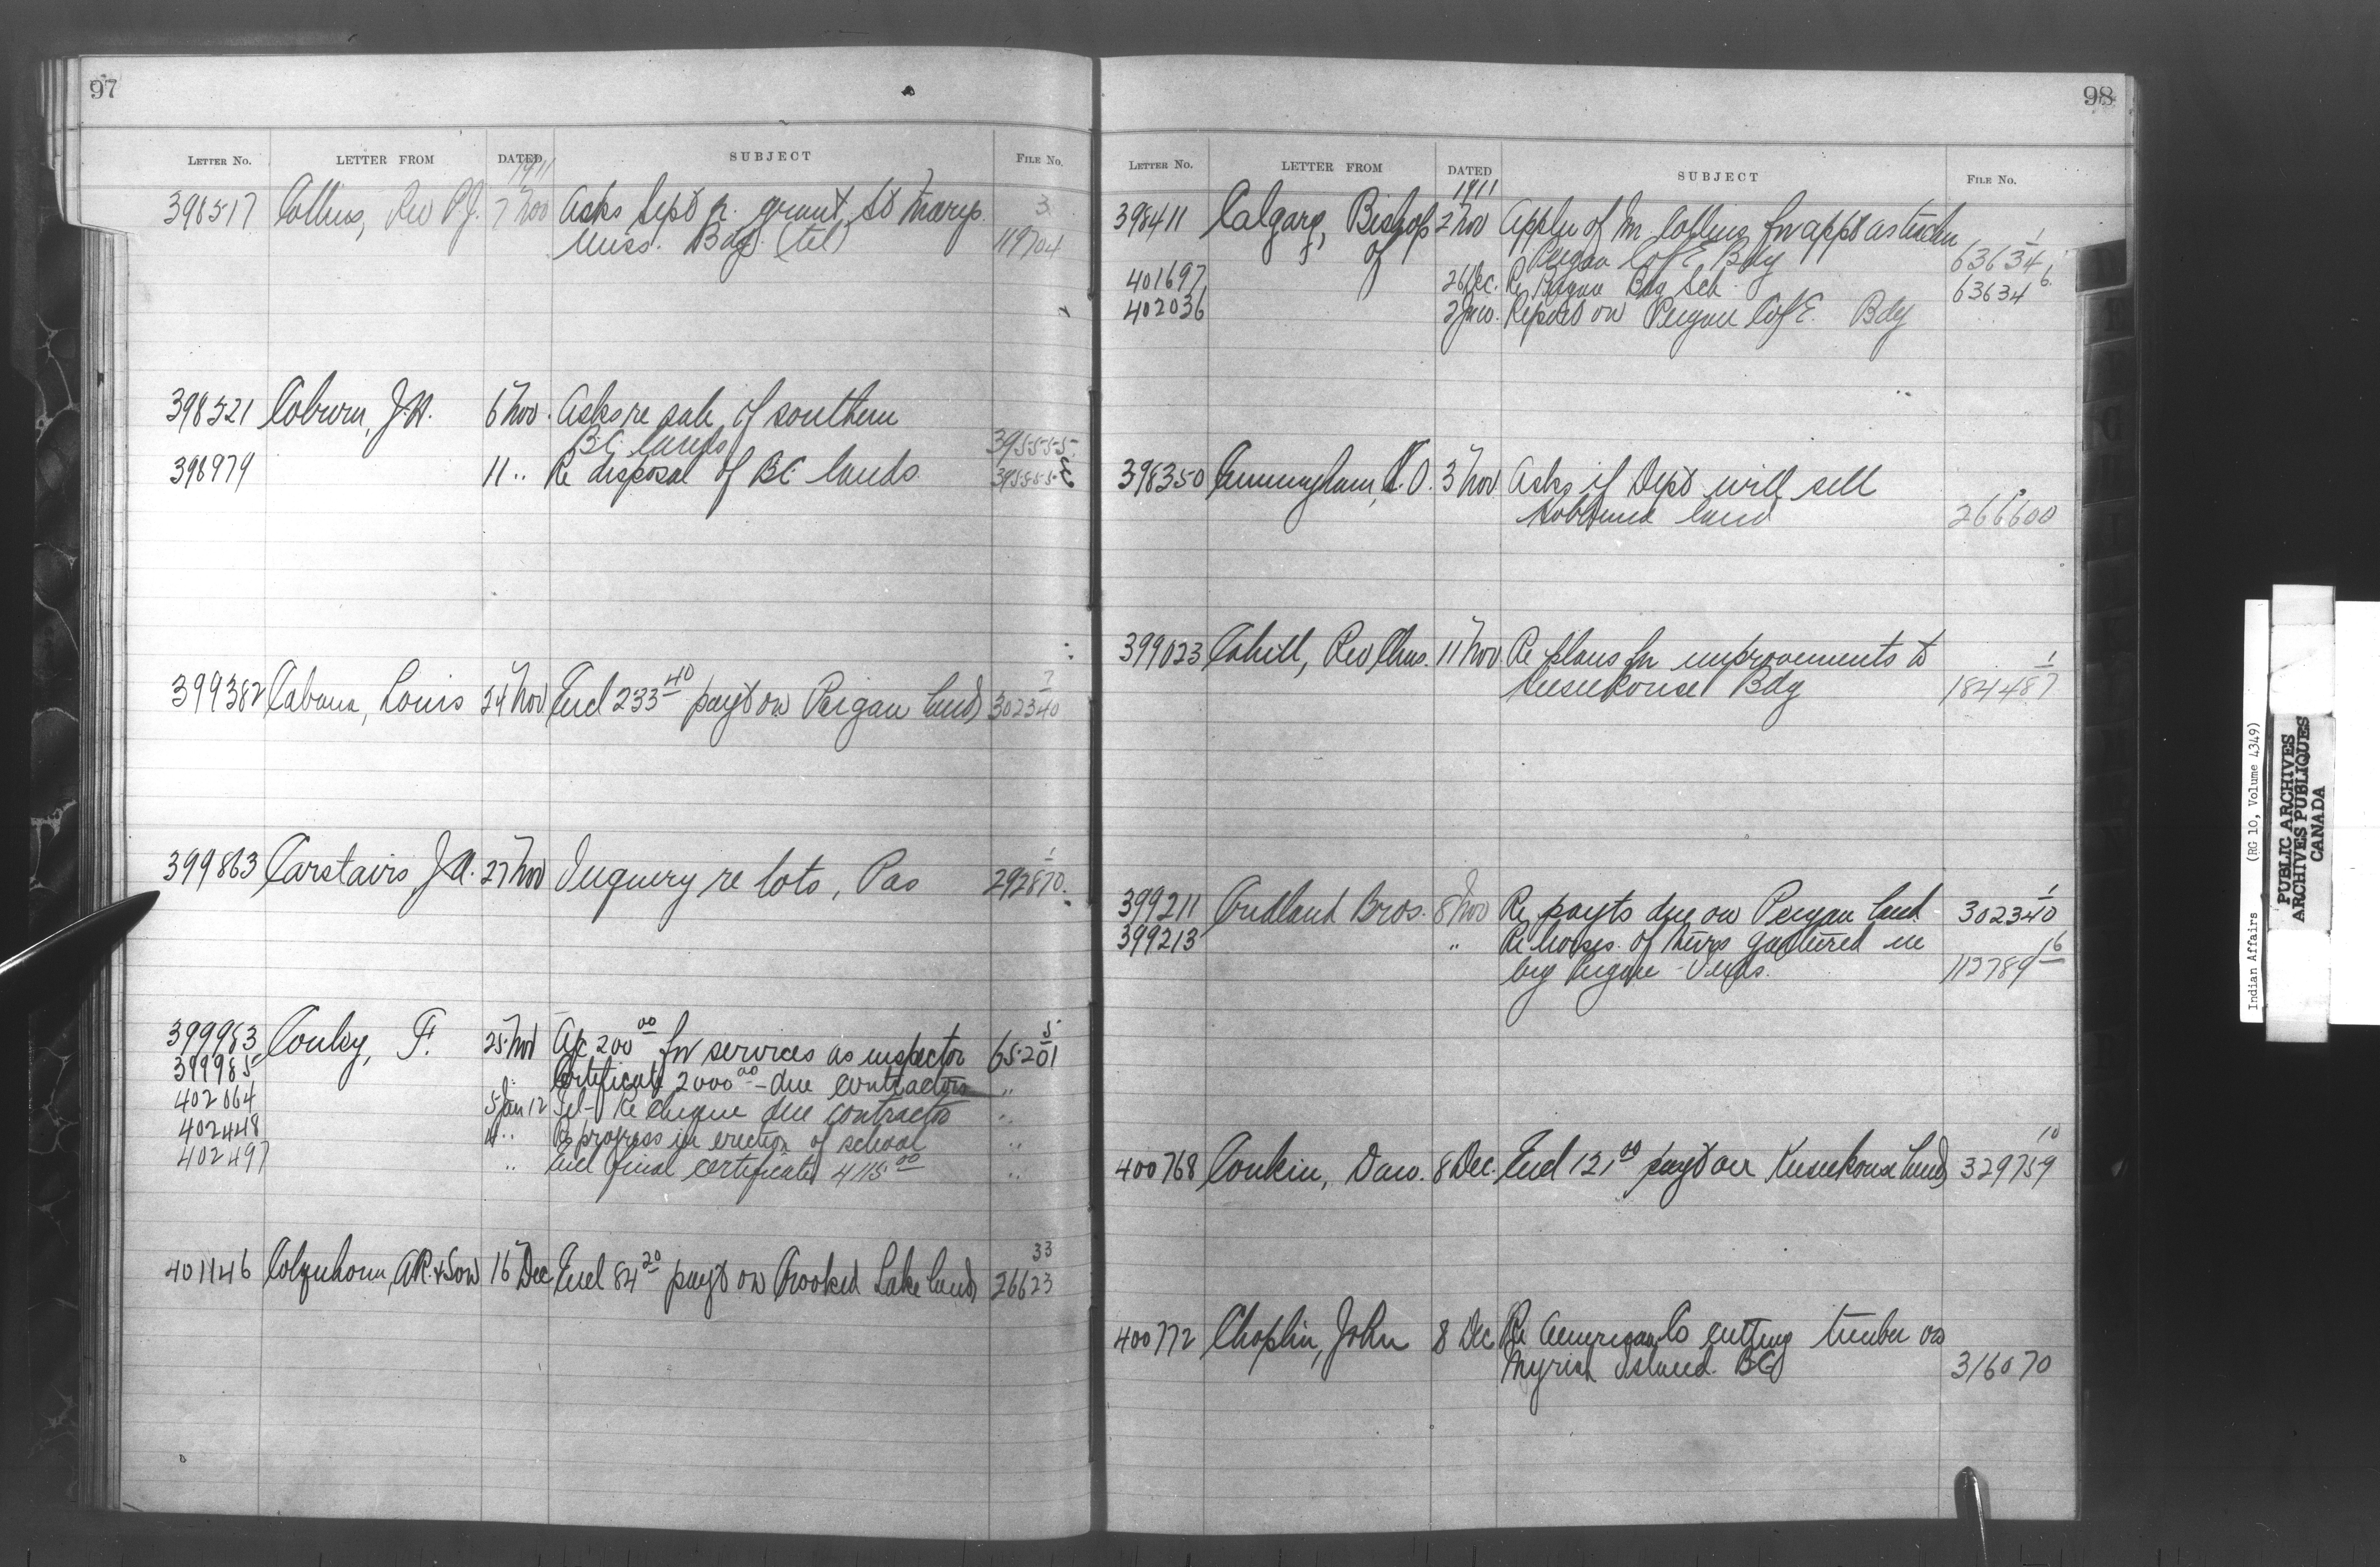 97
LETTER NO. LETTER FROM DATED SUBJECT FILE NO.
1911
398517 Collins, Rev P.J. 7 Nov Asks Sept qr. grant, St Marys 3
Miss. Bdg. (tel) 119704
398521 Coburn, J.H. 6 Nov. Asks re sale of southern
B.C. lands 395555
398979 11 " Re disposal of B.C. lands. 395555
399382 Cabana, Louis 24 Nov Encl 233 40 payt on Peigan lands 302340
399863 Carstairs, J.A. 27 Nov Inquiry re lots, Pas 1 292870
399983 Conley, F. 25 Nov A/c 200 00 for services as inspector 5 65201
399985 Certificate 2000 00 - due contractors "
402064 5 Jan 12 Tel - Re cheque due contractors "
402448 4 " Re progress in erection of school "
402497 " Encl final certificate 4115 00 "
401146 Colquhoun, A.R. & Son 16 Dec Encl 84 20 payt on Crooked Lake lands 33 26623
98
LETTER NO. LETTER FROM DATED SUBJECT FILE NO.
1911
398411 Calgary, Bishop of 2 Nov Appln of Mr Collins for appt as teacher
Peigan C of E Bdg 1 63634
401697 26 Dec. Re Peigan Bdg Sch. 6 63634
402036 2 Jan. Report on Peigan C of E. Bdg
398350 Cunningham, 3 Nov Asks if Dept will sell
land 266600
399023 Cahill, Rev Chas. 11 Nov. Re plans for improvements to
Bdg 1 184487
399211 Cridland Bros. 8 Nov Re payts due on Peigan land 1 302340
399213 " Re horses of theirs in
by Peigan Inds. 16 112789
400768 Conkin, Dan. 8 Dec. Encl 121 00 payt on Keeseekouse lands 10 329759
400772 Choplin, John 8 Dec Re American Co cutting timber on
Island. B.C. 316070
Indian Affairs (RG 10, Volume 4349)
PUBLIC ARCHIVES
ARCHIVES PUBLIQUES
CANADA